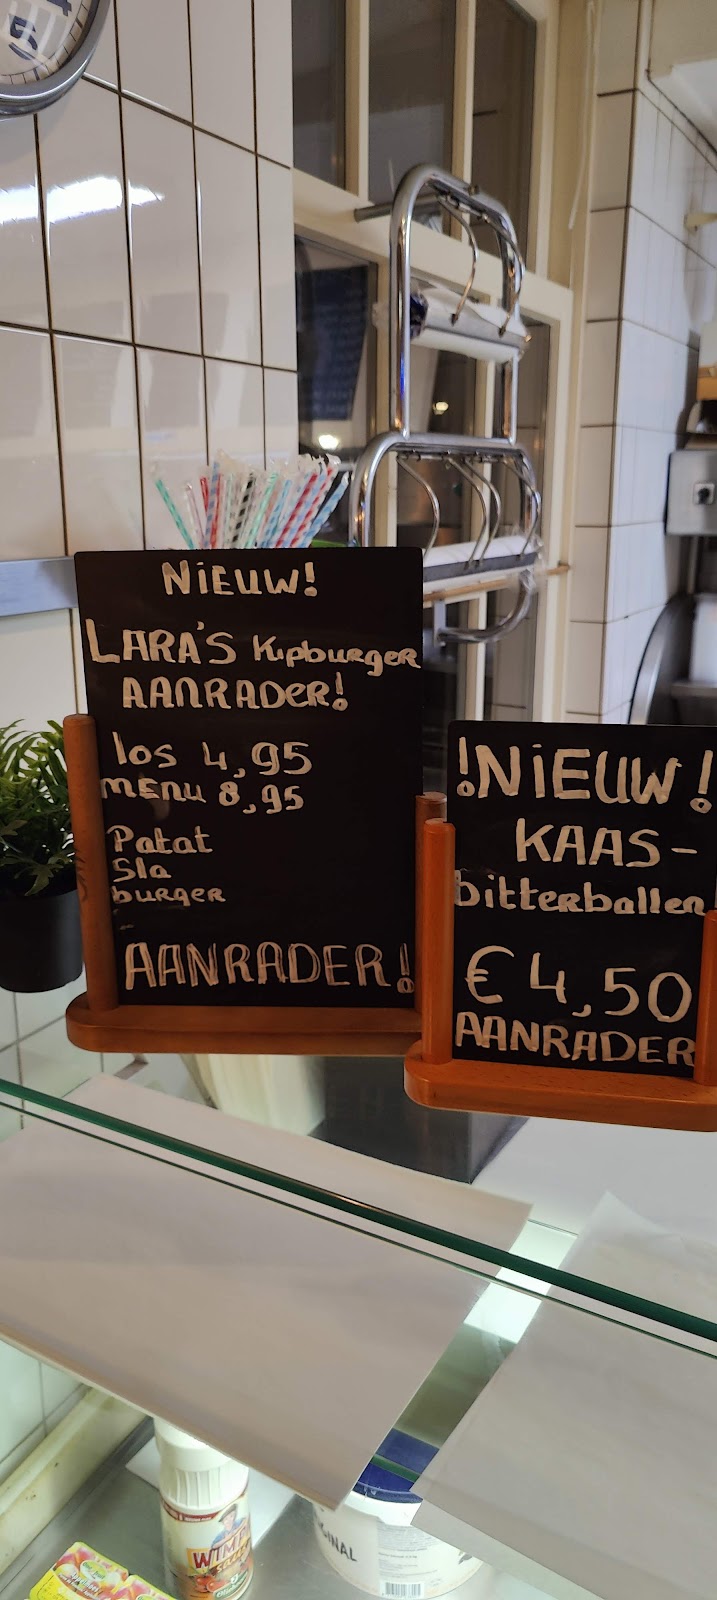 NIEUW!
LARA'S Kipburger
AANRADER!
los 4,95
menu 8,95
Patat
Sla
burger
AANRADER!
!NIEUW!
KAAS-
bitterballen
€ 4,50
AANRADER
WIMP